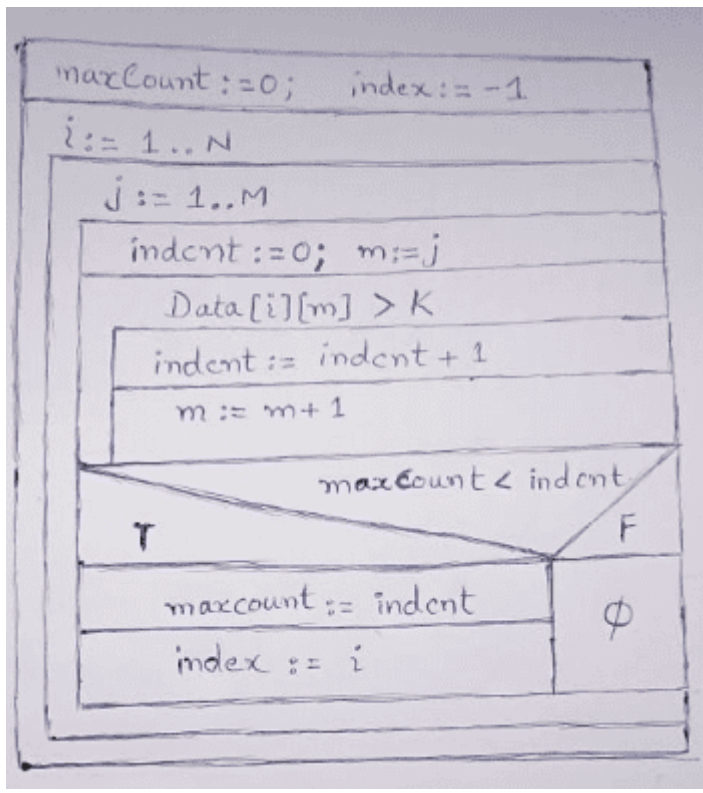 maxCount:=0; index:=-1
i:= 1..N
j:= 1..M
indcnt:=0; m:=j
Data[i][m] > K
indcnt:= indcnt + 1
m:= m+1
maxCount < indcnt
T F
maxcount:= indcnt Ø
index:= i